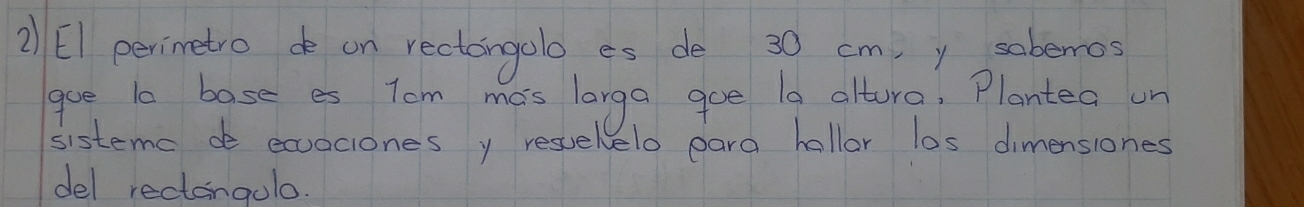 2) El perímetro de un rectángulo es de 30 cm, y sabemos
que la base es 1cm más larga que la altura. Plantea un
sistema de ecuaciones y resuelvelo para hallar las dimensiones
del rectángulo.